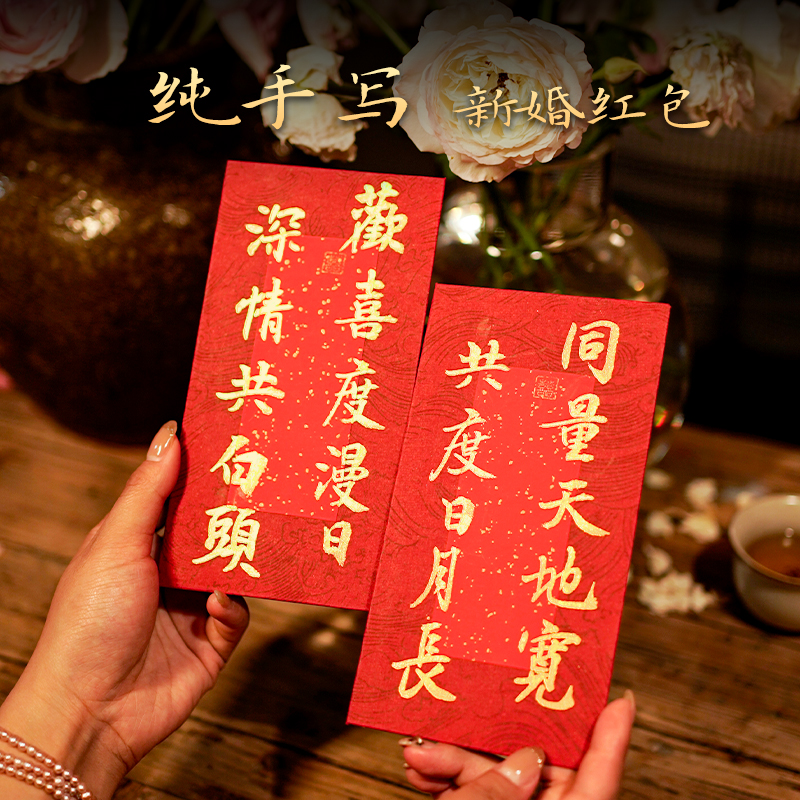 纯手写 新婚红包
歡喜度漫日
深情共白頭
同量天地寬
共度日月長